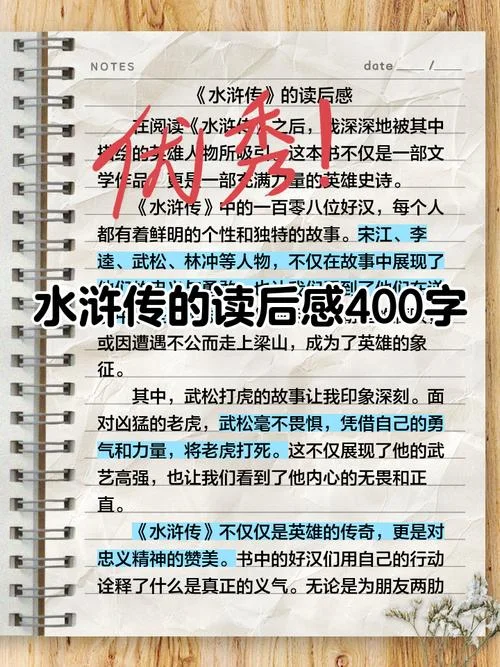 NOTES
date /
《水浒传》的读后感
在阅读《水浒传》之后，我深深地被其中
的英雄人物所吸引。这本书不仅是一部文
学作品，更是一部充满力量的英雄史诗。
优秀！
《水浒传》中的一百零八位好汉，每个人
都有着鲜明的个性和独特的故事。宋江、李
逵、武松、林冲等人物，不仅在故事中展现了
水浒传的读后感400字
或因遭遇不公而走上梁山，成为了英雄的象
征。
其中，武松打虎的故事让我印象深刻。面
对凶猛的老虎，武松毫不畏惧，凭借自己的勇
气和力量，将老虎打死。这不仅展现了他的武
艺高强，也让我们看到了他内心的无畏和正
直。
《水浒传》不仅仅是英雄的传奇，更是对
忠义精神的赞美。书中的好汉们用自己的行动
诠释了什么是真正的义气。无论是为朋友两肋